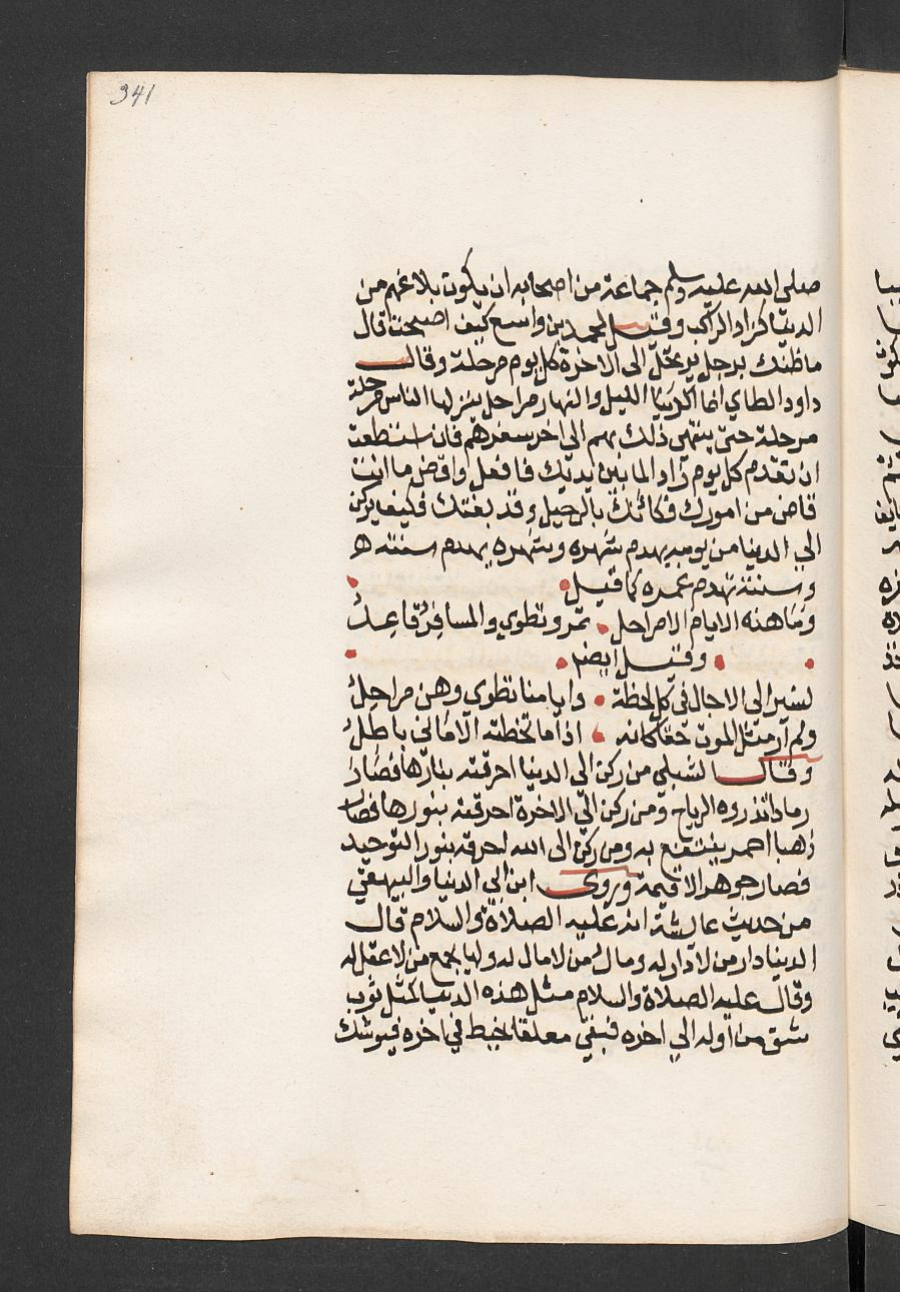 341
صلى الله عليه وسلم جماعة من اصحابه ان يكون بلاغهم من
الدنيا كزاد الراكب وقيل لمحمد بن واسع كيف اصبحت قال
ما ظنك برجل يرتحل الى الاخرة كل يوم مرحلة وقال
داود الطاي انما الدنيا الليل والنهار مراحل ينزلها الناس مرحلة
مرحلة حتى ينتهي ذلك بهم الى اخر سفرهم فان استطعت
ان تقدم كل يوم زادا لما بين يديك فافعل واقض ما انت
قاض من امورك فكانك بالرحيل وقد بغتك فكيف يركن
الى الدنيا من يومه يهدم شهره وشهره يهدم سنته
وسنته تهدم عمره كما قيل
وما هذه الايام الا مراحل تمر وتطوي والمسافر قاعد
وقيل ايضا
نسير الى الاجال في كل لحظة وايامنا تطوى وهن مراحل
ولم ار مثل الموت حقا كانه اذا ما تخطته الاماني باطل
وقال الشبلي من ركن الى الدنيا احرقته بنارها فصار
رمادا تذروه الرياح ومن ركن الى الاخرة احرقته بنورها فصار
ذهبا احمر ينتفع به ومن ركن الى الله احرقه بنور التوحيد
فصار جوهر الا قيمة وروى ابن ابي الدنيا والبيهقي
من حديث عايشة انه عليه الصلاة والسلام قال
الدنيا دار من لا دار له ومال من لا مال له ولها يجمع من لا عقل له
وقال عليه الصلاة والسلام مثل هذه الدنيا كمثل ثوب
شق من اوله الى اخره فبقي معلقا بخيط في اخره فيوشك